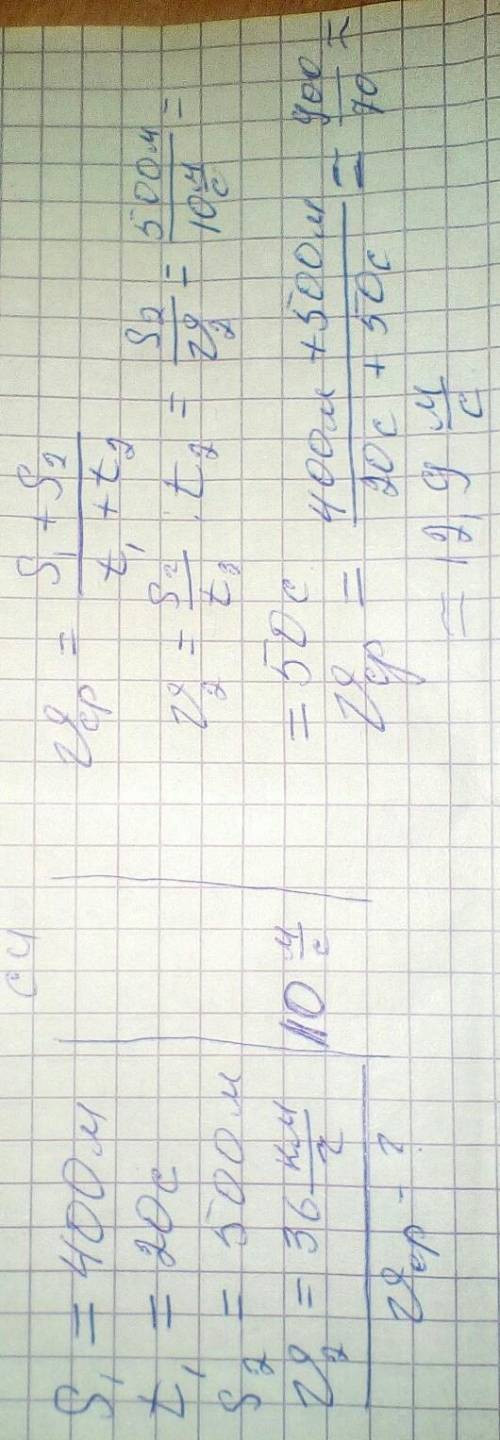 S₁ = 400м
t₁ = 20с
S₂ = 500м
υ₂ = 36 км/ч
υср - ?
СИ
10 м/с
υср = (S₁ + S₂)/(t₁ + t₂)
υ₂ = S₂/t₂ ; t₂ = S₂/υ₂ = 500м/10 м/с =
= 50с
υср = (400м + 500м)/(20с + 50с) = 900/70 =
= 12,9 м/с